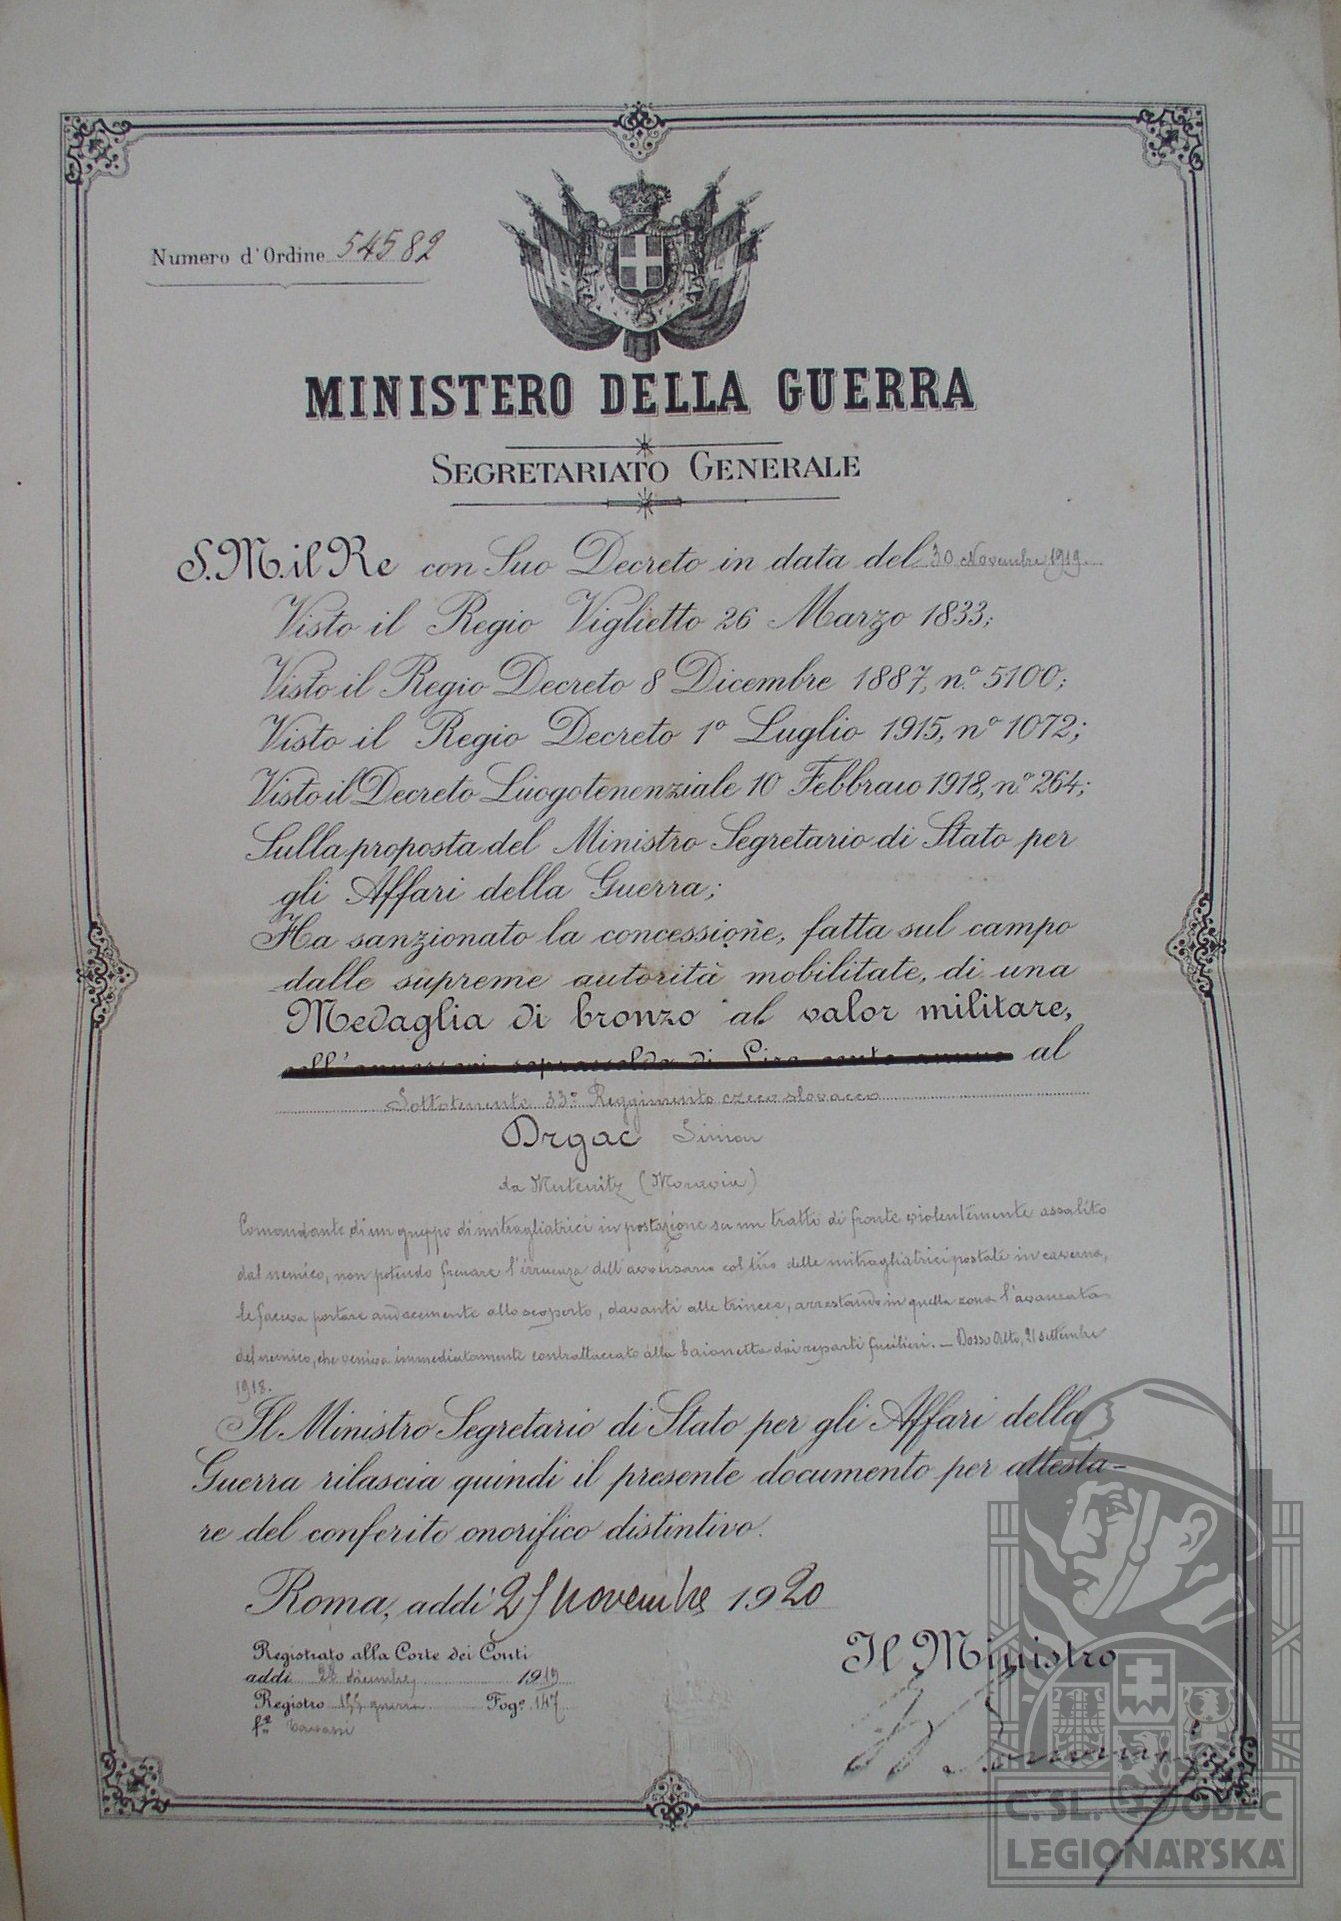 Numero d'Ordine 54582
MINISTERO DELLA GUERRA
SEGRETARIATO GENERALE
S. M. il Re con Suo Decreto in data del 30 Novembre 1919
Visto il Regio Viglietto 26 Marzo 1833;
Visto il Regio Decreto 8 Dicembre 1887, n.° 5100;
Visto il Regio Decreto 1° Luglio 1915, n° 1072;
Visto il Decreto Luogotenenziale 10 Febbraio 1918, n.° 264;
Sulla proposta del Ministro Segretario di Stato per
gli Affari della Guerra;
Ha sanzionato la concessione, fatta sul campo
dalle supreme autorità mobilitate, di una
Medaglia di bronzo al valor militare,
coll'annesso soprassoldo di Lire cento annue al
Sottotenente 33° Reggimento czeco slovacco
Drgac Simon
da Mutenitz (Moravia)
Comandante di un gruppo di mitragliatrici in postazione su un tratto di fronte violentemente assalito
dal nemico, non potendo frenare l'irruenza dell'avversario col tiro delle mitragliatrici postate in caverna,
le faceva portare audacemente allo scoperto, davanti alle trincee, arrestando in quella zona l'avanzata
del nemico, che veniva immediatamente contrattaccato alla baionetta dai reparti fucilieri. — Dosso Alto, 21 settembre
1918.
Il Ministro Segretario di Stato per gli Affari della
Guerra rilascia quindi il presente documento per attesta-
re del conferito onorifico distintivo.
Roma, addì novembre 1920
Registrato alla Corte dei Conti
addì 28 dicembre 1919
Registro 155 guerra Fog.° 147
Il Ministro
Č. SL. OBEC
LEGIONÁŘSKÁ